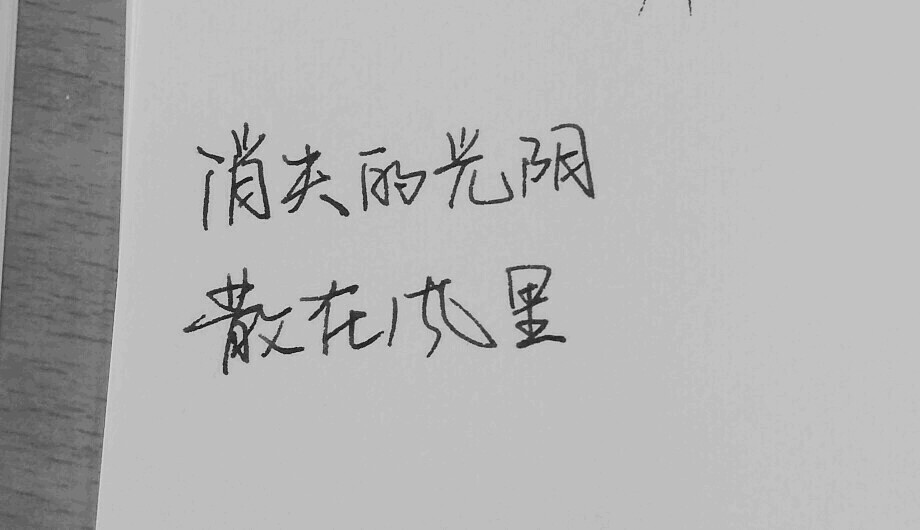 消失的光阴
散在风里